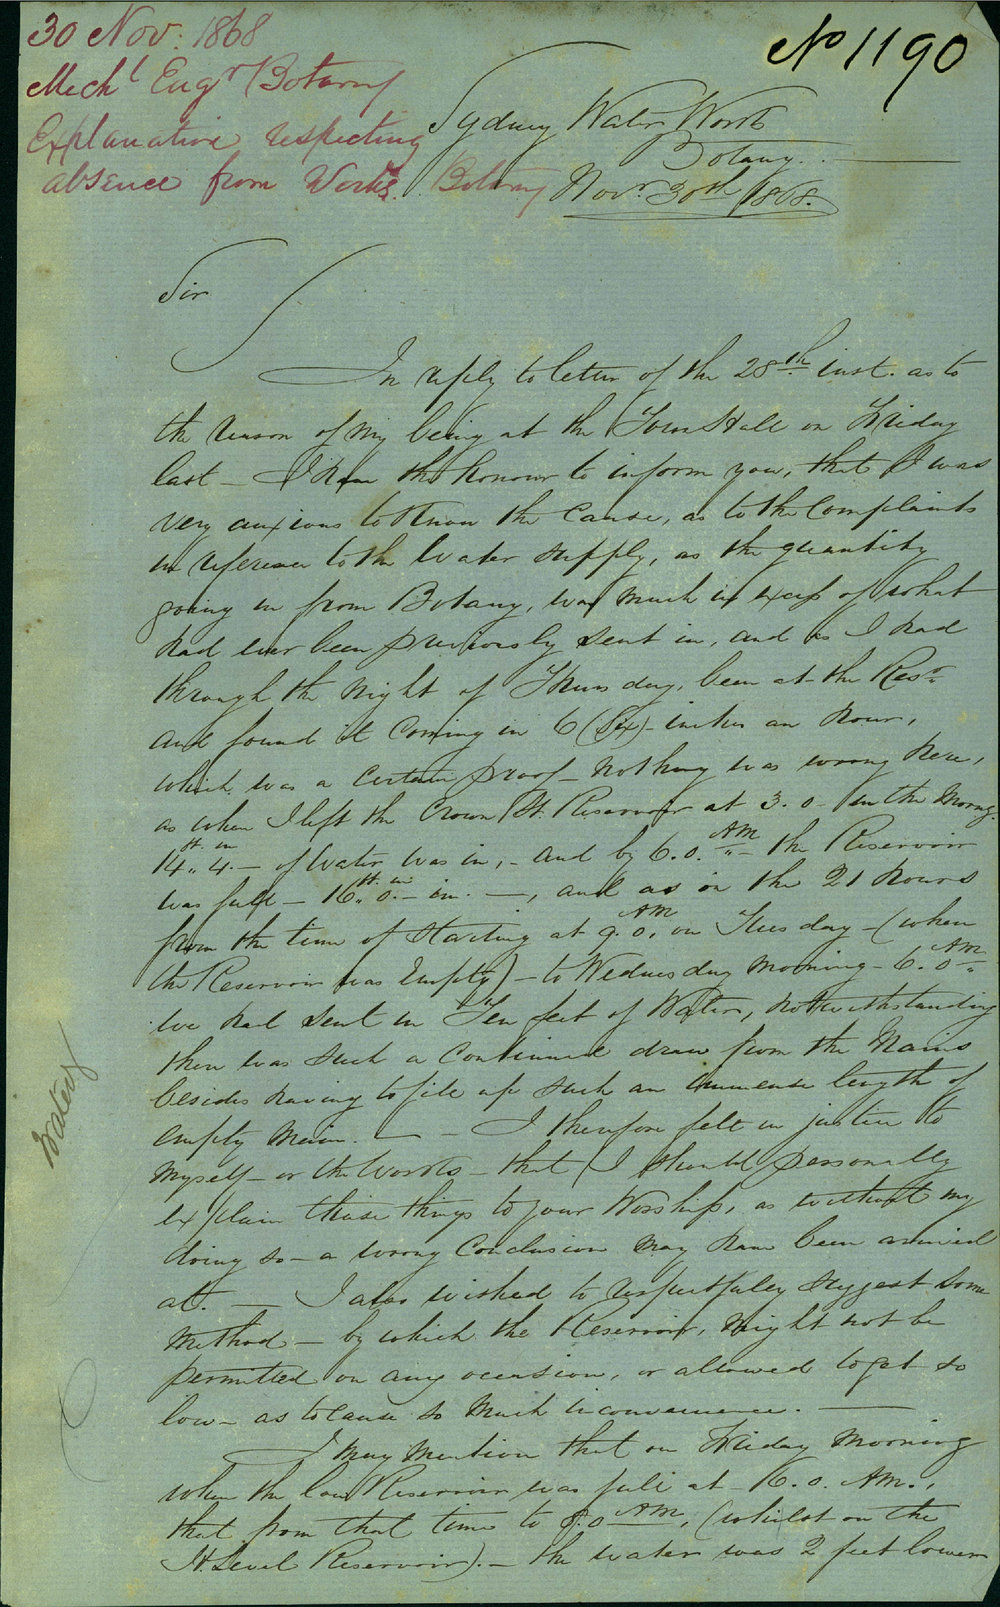 30 Nov: 1868
Mechl Engr Botany
Explanative respecting
absence from Works. Botany
No 1190
Sydney Water Works
Botany.
Novr. 30th 1868.
Sir
In reply to letter of the 28th inst. as to
the reason of my being at the Town Hall on Friday
last – I have the honour to inform you, that I was
very anxious to know the Cause, as to the Complaints
in reference to the Water supply, as the quantity
going in from Botany, was much in excess of what
had ever been previously sent in, and as I had
through the night of Thursday, been at the Resr.
and found it coming in 6 (Six) inches an hour,
which was a certain proof – nothing was wrong here,
as when I left the Crown St. Reservoir at 3.0 in the Morng.
14 ft. 4 in – of Water was in, – and by 6.0. AM the Reservoir
was full – 16 ft. 0 in – in. –, and as in the 21 hours
from the time of starting at 9.0. AM on Tuesday – (when
the Reservoir was Empty) – to Wednesday morning – 6.0 AM
we had sent in Ten feet of Water, notwithstanding
there was such a continued draw from the Mains
besides having to file up such an immense length of
empty main. – – I therefore felt in justice to
myself – or the Works – that I should personally
explain those things to your Worship, as without my
doing so – a wrong Conclusion may have been arrived
at. – I also wished to respectfuley suggest some
method – by which the Reservoir, might not be
permitted on any occasion, or allowed to get so
low – as to cause so much inconvenience. –
I may mention that on Friday morning
when the low Reservoir was full at 6.0. AM.,
that from that time to 8.0 AM, (whilst on the
H. Level Reservoir). – the water was 2 feet lower
Water